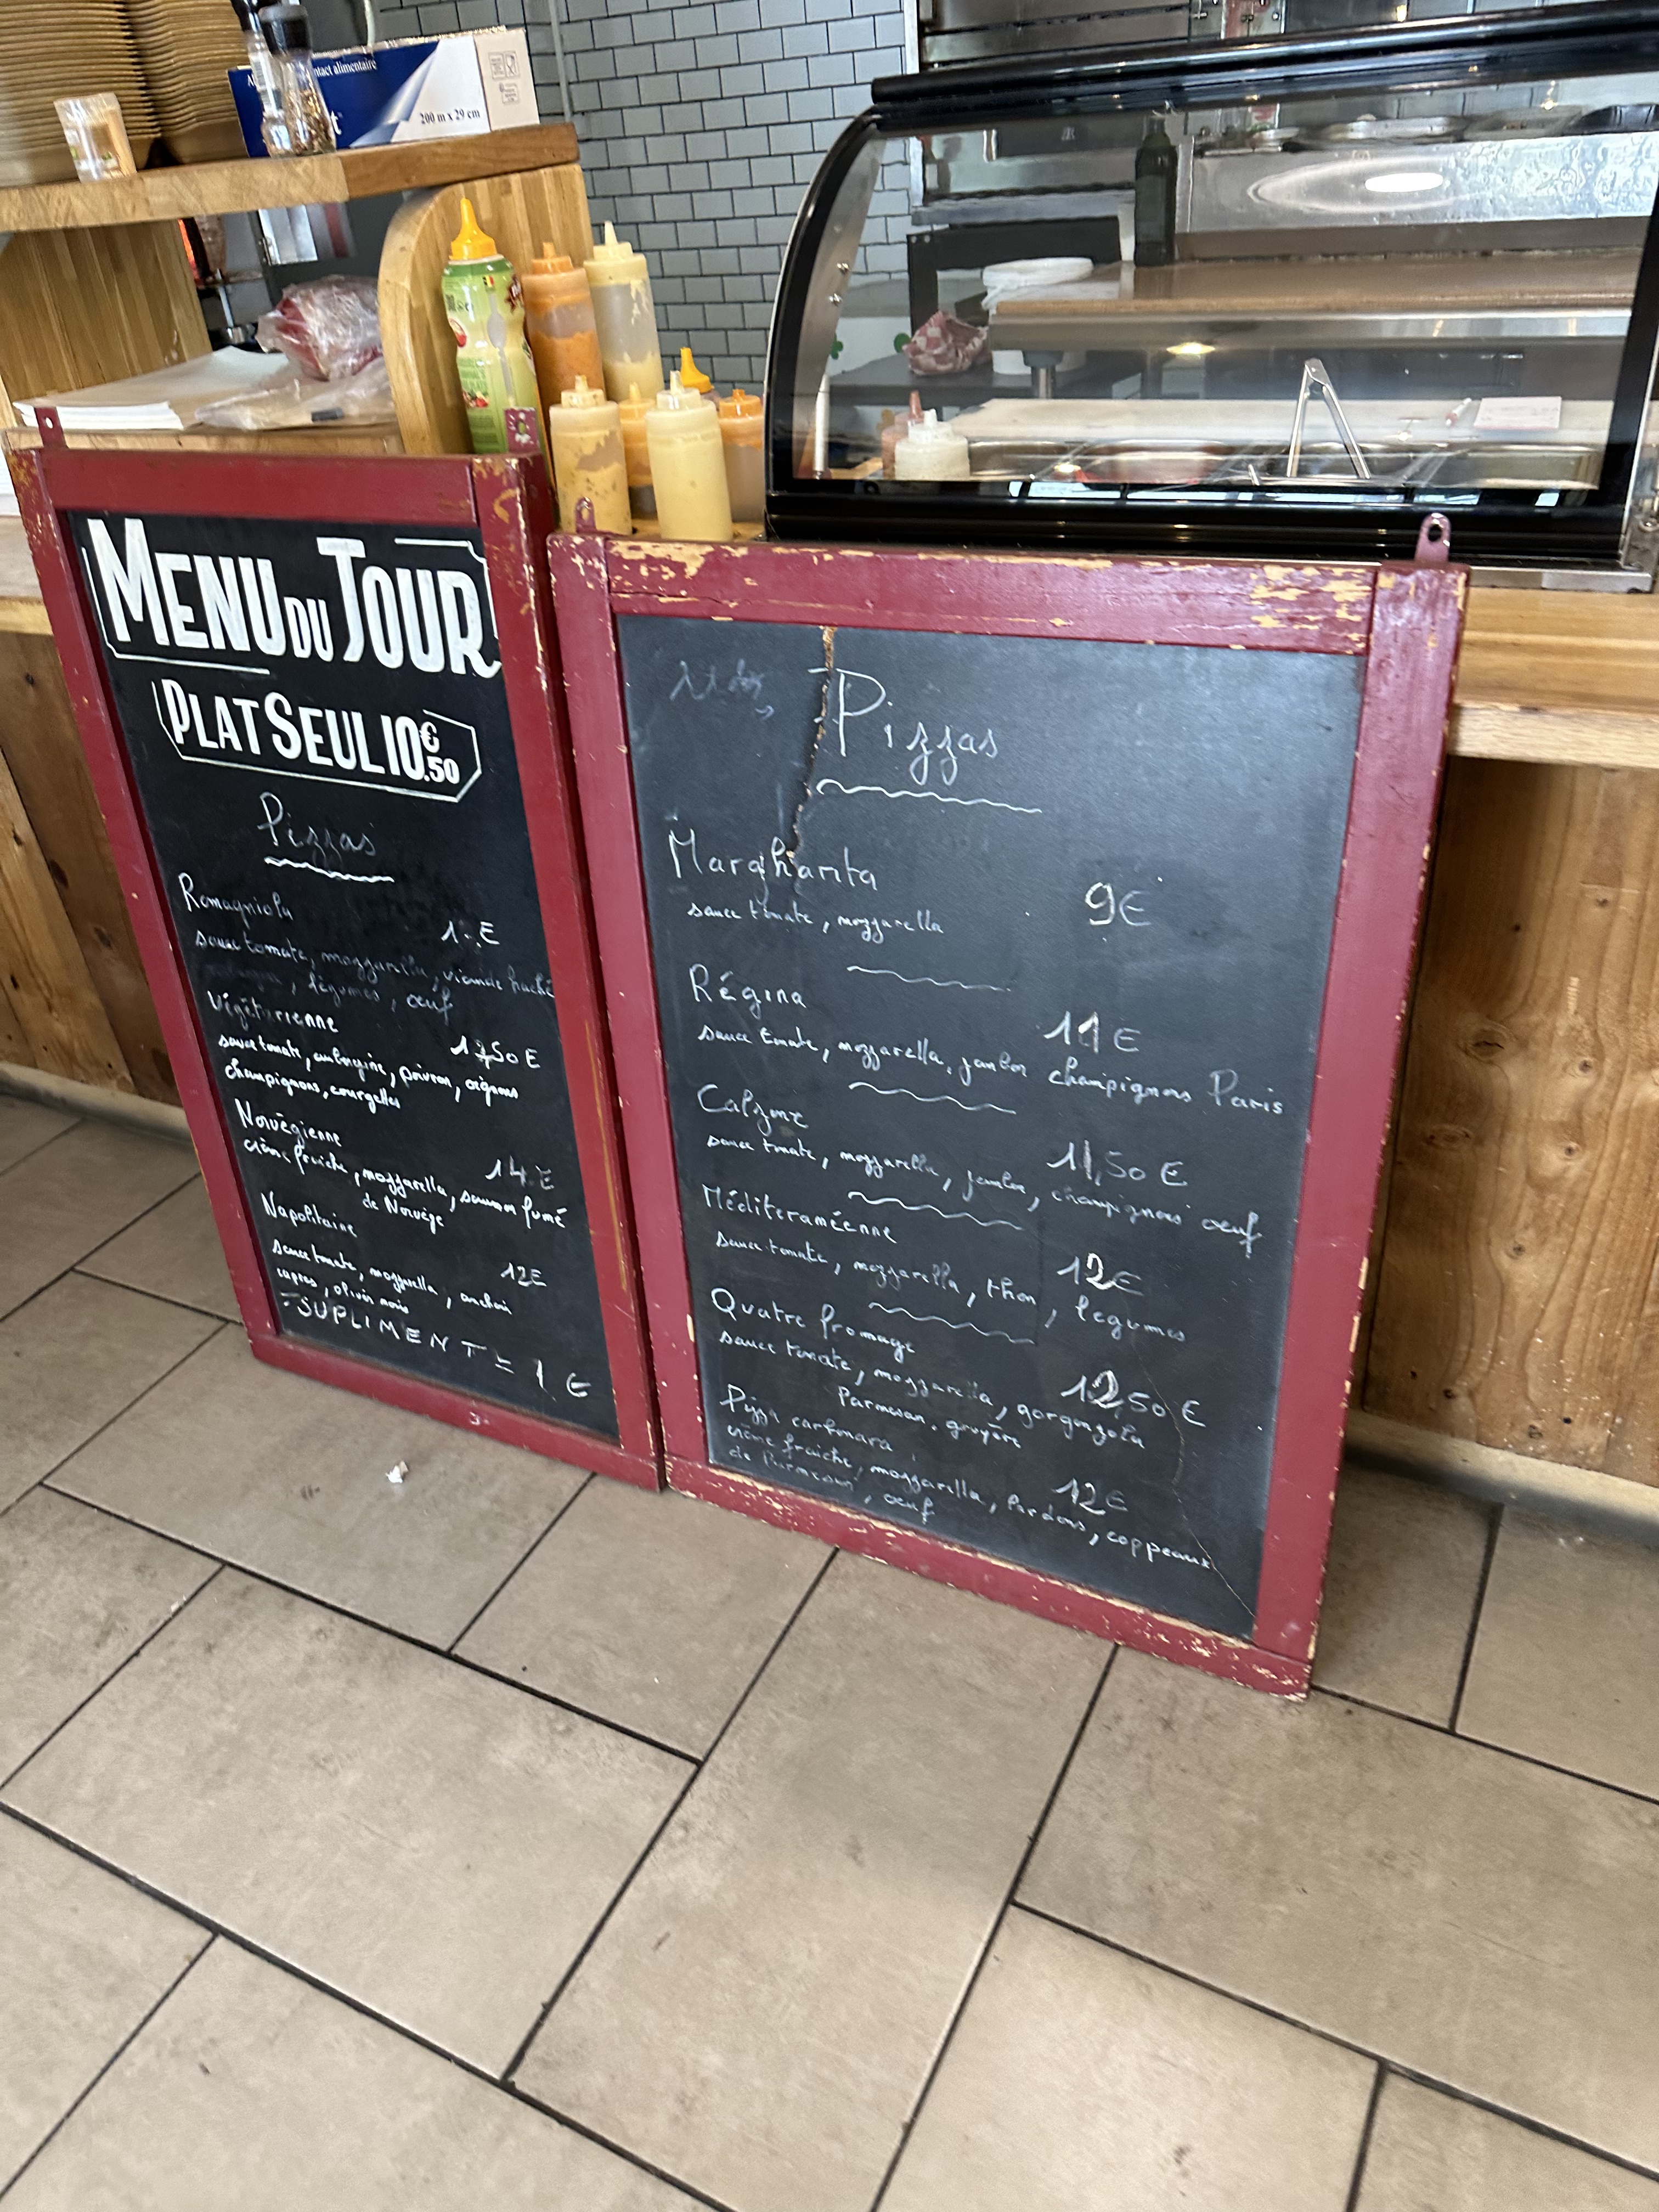 ntact alimentaire
200 m x 29 cm
MENU DU JOUR
PLAT SEUL 10€.50
Pizzas
Romagniola
€
sauce tomate, mozzarella, viande haché
, légumes, œuf
Végétarienne
50 €
sauce tomate, aubergine, poivron, oignons
champignons, courgettes
Norvégienne
14 €
crème fraîche, mozzarella, saumon fumé
de Norvège
Napolitaine
12€
sauce tomate, mozzarella, anchois
capres, olives noir
SUPLIMENT = 1 €
Pizzas
Margharita
9€
sauce tomate, mozzarella
Régina
11€
sauce tomate, mozzarella, jambon champignons Paris
Calzone
11,50 €
sauce tomate, mozzarella, jambon, champignons œuf
Méditeraméenne
12€
sauce tomate, mozzarella, thon, legumes
Quatre fromage
12,50 €
sauce tomate, mozzarella, gorgonzola
Parmesan, gruyère
Pizza carbonara
12€
crème fraiche, mozzarella, lardons, coppeaux
de Parmesan, œuf